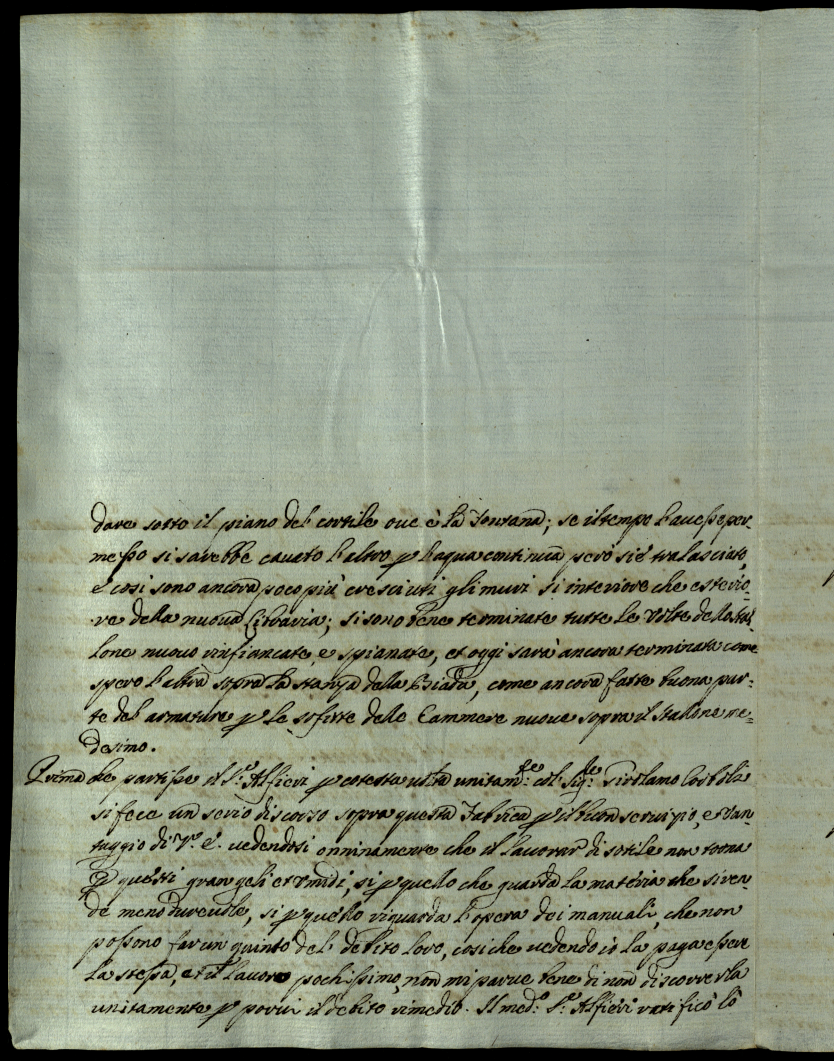 dare sotto il piano del cortile oue è la Fontana; se il tempo l'auesse per-
messo si sarebbe cauato l'altro p l'aqua continua però si è tralasciato,
e cosi sono ancora poco più cresciuti gli muri si interiore che esterio-
re della nuoua Libraria; si sono bene terminate tutte le Volte dello stal-
lone nuouo rinfiancate, e spianate, et oggi sarà ancora terminata come
spero l'altra sopra la stanza della Biada, come ancora fatte buona par-
te del armature p le sofitte delle Cammere nuoue sopra il stallone me-
desimo.
Prima che partisse il S.r Alfieri p cotesta uolta unitam.te col Sig.r Girolamo
si fece un serio discorso sopra questa Fabrica p il buon seruizio, e uan-
taggio di V.a E. uedendosi onninamente che il lauorar di sotile non torna
p questi gran geli et umidi, si p quello che guarda la materia che si ren-
de meno dureuole, si p quello riguarda l'opera dei manuali, che non
possono far un quinto del debito loro, cosiche uedendo io la paga essere
la stessa, et il lauoro pochissimo, non mi parue bene di non discorrerla
unitamente p porui il debito rimedio. Il med.o S.r Alfieri ratificò lo